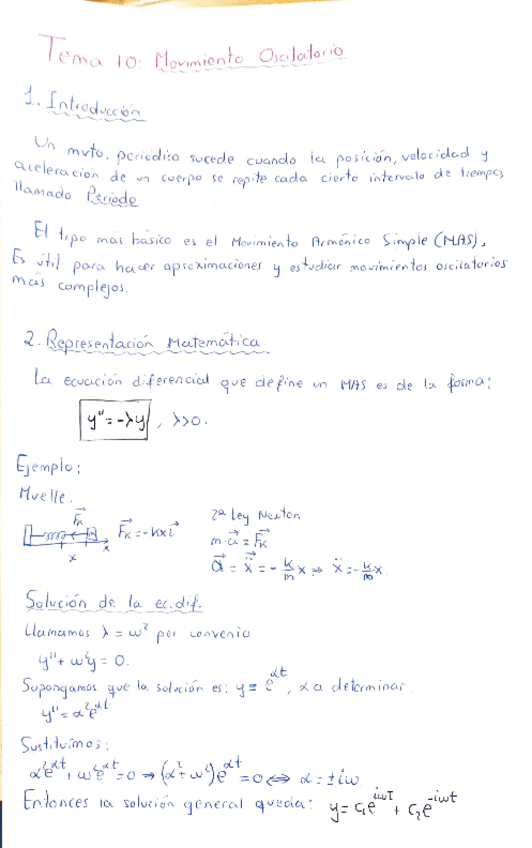 Tema 10: Movimiento Oscilatorio
1. Introducción
Un mvto. periódico sucede cuando la posición, velocidad y
aceleración de un cuerpo se repite cada cierto intervalo de tiempo,
llamado Periodo
El tipo más básico es el Movimiento Armónico Simple (MAS),
Es útil para hacer aproximaciones y estudiar movimientos oscilatorios
más complejos.
2. Representación Matemática.
La ecuación diferencial que define un MAS es de la forma:
y'' = -λy , λ>0.
Ejemplo:
Muelle.
F⃗k
x
x
F⃗k = -kx i⃗
2ª Ley Newton
m·a⃗ = F⃗k
a⃗ = ẍ⃗ = - k/m x ⇒ ẍ = - k/m x
Solución de la ec.dif.
Llamamos λ = ω² por convenio
y'' + ω²y = 0.
Supongamos que la solución es: y = e^αt, α a determinar.
y'' = α²e^αt
Sustituimos:
α²e^αt + ω²e^αt = 0 ⇒ (α² + ω²)e^αt = 0 ⇔ α = ± iω
Entonces la solución general queda: y = c₁e^iωt + c₂e^-iωt